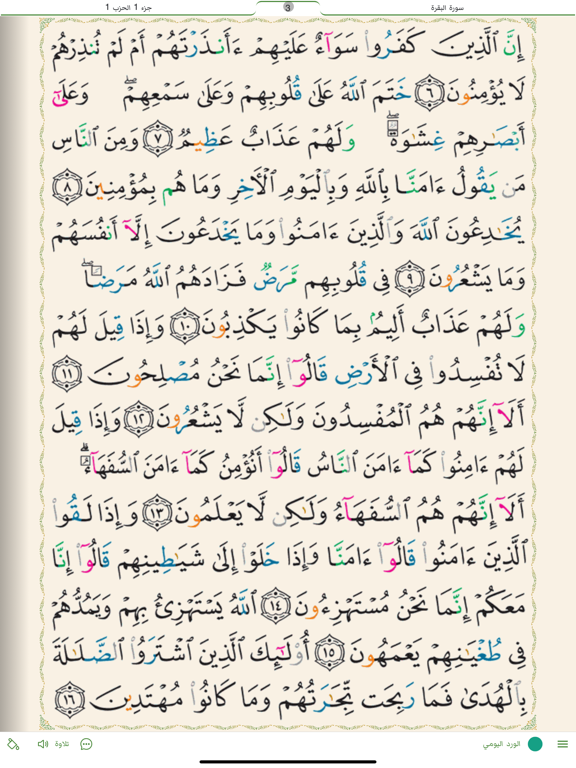 سورة البقرة 3 جزء 1 الحزب 1
إِنَّ ٱلَّذِينَ كَفَرُوا۟ سَوَآءٌ عَلَيْهِمْ ءَأَنذَرْتَهُمْ أَمْ لَمْ تُنذِرْهُمْ
لَا يُؤْمِنُونَ ٦ خَتَمَ ٱللَّهُ عَلَىٰ قُلُوبِهِمْ وَعَلَىٰ سَمْعِهِمْ ۖ وَعَلَىٰٓ
أَبْصَـٰرِهِمْ غِشَـٰوَةٌ ۖ وَلَهُمْ عَذَابٌ عَظِيمٌ ٧ وَمِنَ ٱلنَّاسِ
مَن يَقُولُ ءَامَنَّا بِٱللَّهِ وَبِٱلْيَوْمِ ٱلْأَخِرِ وَمَا هُم بِمُؤْمِنِينَ ٨
يُخَـٰدِعُونَ ٱللَّهَ وَٱلَّذِينَ ءَامَنُوا۟ وَمَا يَخْدَعُونَ إِلَّآ أَنفُسَهُمْ
وَمَا يَشْعُرُونَ ٩ فِى قُلُوبِهِم مَّرَضٌ فَزَادَهُمُ ٱللَّهُ مَرَضًا ۖ
وَلَهُمْ عَذَابٌ أَلِيمٌۢ بِمَا كَانُوا۟ يَكْذِبُونَ ١٠ وَإِذَا قِيلَ لَهُمْ
لَا تُفْسِدُوا۟ فِى ٱلْأَرْضِ قَالُوٓا۟ إِنَّمَا نَحْنُ مُصْلِحُونَ ١١
أَلَآ إِنَّهُمْ هُمُ ٱلْمُفْسِدُونَ وَلَـٰكِن لَّا يَشْعُرُونَ ١٢ وَإِذَا قِيلَ
لَهُمْ ءَامِنُوا۟ كَمَآ ءَامَنَ ٱلنَّاسُ قَالُوٓا۟ أَنُؤْمِنُ كَمَآ ءَامَنَ ٱلسُّفَهَآءُ ۗ
أَلَآ إِنَّهُمْ هُمُ ٱلسُّفَهَآءُ وَلَـٰكِن لَّا يَعْلَمُونَ ١٣ وَإِذَا لَقُوا۟
ٱلَّذِينَ ءَامَنُوا۟ قَالُوٓا۟ ءَامَنَّا وَإِذَا خَلَوْا۟ إِلَىٰ شَيَـٰطِينِهِمْ قَالُوٓا۟ إِنَّا
مَعَكُمْ إِنَّمَا نَحْنُ مُسْتَهْزِءُونَ ١٤ ٱللَّهُ يَسْتَهْزِئُ بِهِمْ وَيَمُدُّهُمْ
فِى طُغْيَـٰنِهِمْ يَعْمَهُونَ ١٥ أُو۟لَـٰٓئِكَ ٱلَّذِينَ ٱشْتَرَوُا۟ ٱلضَّلَـٰلَةَ
بِٱلْهُدَىٰ فَمَا رَبِحَت تِّجَـٰرَتُهُمْ وَمَا كَانُوا۟ مُهْتَدِينَ ١٦
الورد اليومي تلاوة